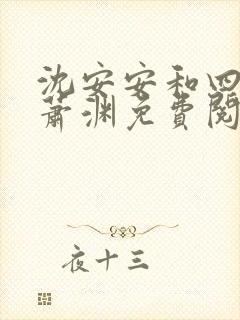 沈安安和四
萧渊免费阅
夜十三